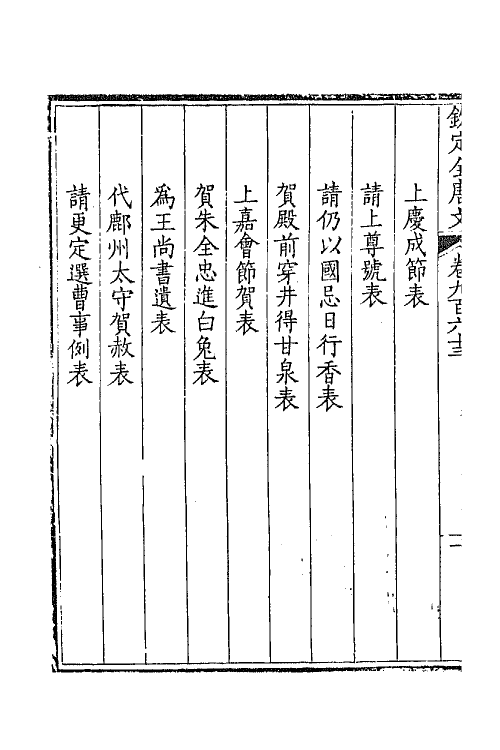 欽定全唐文 卷九百六十三 一
上慶成節表
請上尊號表
請仍以國忌日行香表
賀殿前穿井得甘泉表
上嘉會節賀表
賀朱全忠進白兔表
爲王尚書遺表
代鄜州太守賀赦表
請更定選曹事例表